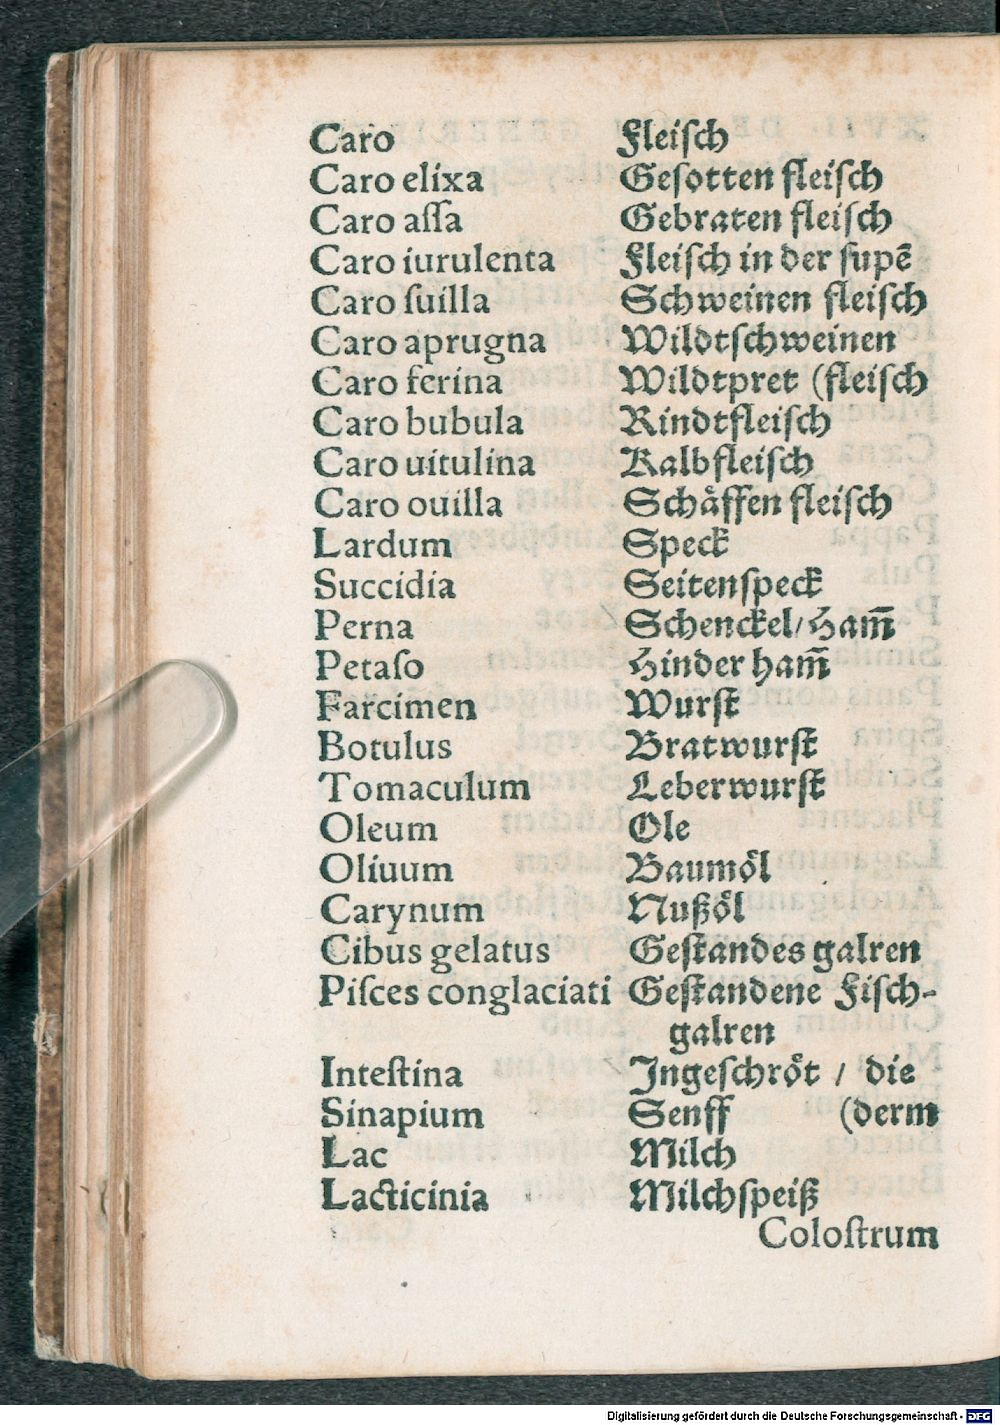 Caro Fleiſch
Caro elixa Geſotten fleiſch
Caro aſſa Gebraten fleiſch
Caro iurulenta Fleiſch in der ſupē
Caro ſuilla Schweinen fleiſch
Caro aprugna Wildtſchweinen
Caro ferina Wildtpret (fleiſch
Caro bubula Rindtfleiſch
Caro uitulina Kalbfleiſch
Caro ouilla Schåffen fleiſch
Lardum Speck
Succidia Seitenſpeck
Perna Schenckel/ Ham̄
Petaſo Hinder ham̄
Farcimen Wurſt
Botulus Bratwurſt
Tomaculum Leberwurſt
Oleum Ole
Oliuum Baumöl
Carynum Nußöl
Cibus gelatus Geſtandes galren
Piſces conglaciati Geſtandene Fiſch-
galren
Inteſtina Ingeſchröt / die
Sinapium Senff (derm
Lac Milch
Lacticinia Milchſpeiß
Coloſtrum
Digitalisierung gefördert durch die Deutsche Forschungsgemeinschaft - DFG